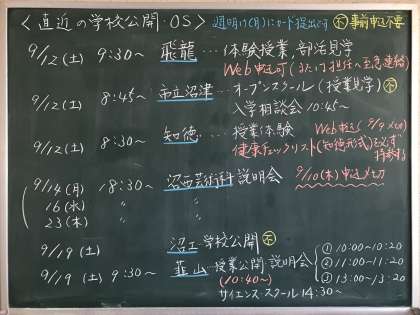 ＜直近の学校公開・OS＞ 週明け(月)にカード提出です ㋫事前申込不要
9/12(土) 9:30～ 飛龍…体験授業,部活見学
Web申込可(または担任へ至急連絡)
9/12(土) 8:45～ 市立沼津…オープンスクール(授業見学)㋫
入学相談会 10:45～
9/12(土) 8:30～ 知徳…授業体験 Web申込(9/9〆切)
健康チェックリスト(知徳形式)を必ず持参
9/14(月) 18:30～ 沼西芸術科説明会 9/10(木)申込〆切
16(水) 〃 〃
23(木) 〃 〃
9/19(土) 沼工学校公開
9/19(土) 9:30～ 韮山…授業公開 説明会
(10:40～)
① 10:00～10:20
② 11:00～11:20
③ 13:00～13:20
サイエンス・スクール 14:30～